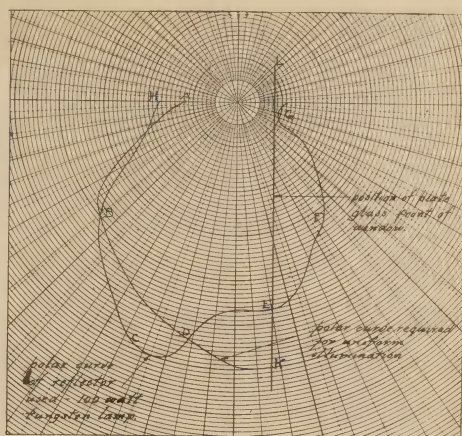 H
A
G
B
position of plate
glass front of
window.
F
E
D
C
polar curve required
for uniform
illumination
K
polar curve
of reflector
used - 100 watt
tungsten lamp.